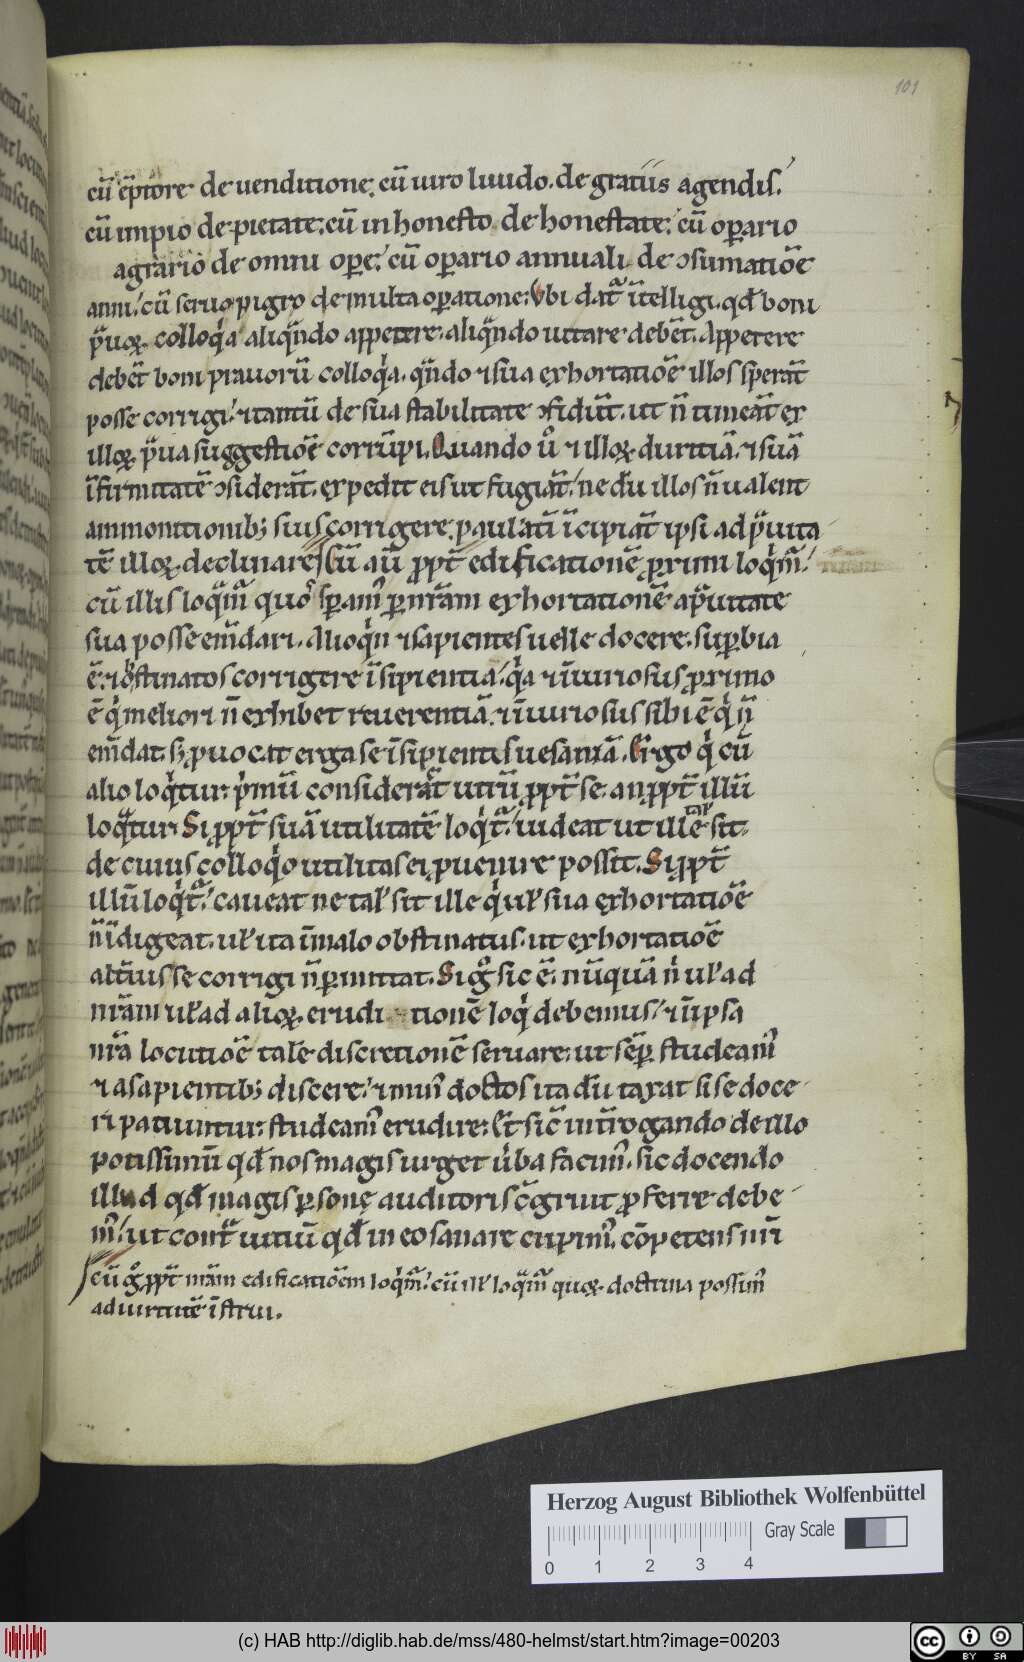 101
cū ēptore de uenditione. cū uiro liuido. de gratiis agendis.
cū impio de pietate; cū inhonesto de honestate; cū opario
agrario de omni ope; cū opario annuali de ↄsumatiōe
anni; cū seruo pigro de multa opatione; Vbi dat᷑ ītelligi. qđ boni
puoꝝ colloqͥa aliqͣndo appetere. aliqͣndo uitare debēt. Appetere
debēt boni prauorū colloqͥa. qͣndo ⁊ sua exhortatiōe illos sperāt
posse corrigi; ⁊ tantū de sua stabilitate ↄfidūt. ut n̄ timeāt ex
illoꝝ pͣua suggestiōe corrūpi. Quando uͦ ⁊ illoꝝ duritiā. ⁊ suā
īfirmitatē ↄsiderāt. expedit eis ut fugiāt; ne dū illos n̄ ualent
ammonitionibꝫ suis corrigere. paulatī īcipiāt ipsi ad pͣuita
tē illoꝝ declinare. Cū aū ꝓpt̄ edificationē ꝓximi loqͥm᷑;
cū illis loqͣm᷑ quoꝰ spam᷒ p nr̄am exhortationē a pͣuitate
sua posse em̄dari. Alioqͥn ⁊ sapientes uelle docere; supbia
ē; ⁊ obstinatos corrigere īsipientia; qͥa ⁊ īiuriosus ꝓximo
ē qͥ meliori n̄ exhibet reuerentiā. ⁊ īiuriosus sibi ē qͥ n̄
em̄dat. sꝫ ꝓuocat erga se īsipientis uesaniā. Ergo qͥ cū
alio loqͥtur. pͥmū considerāt utrū ꝓpt̄ se. an ꝓpt̄ illū
loqͣtur. Si ꝓpt̄ suā utilitatē loqͥt᷑; uideat ut ille talꝭ sit.
de cuius colloqͥo utilitas ei ꝓuenire possit. Si ꝓpt̄
illū loqͥt᷑; caueat ne talꝭ sit ille qͥ ul̵ sua exhortatiōe
n̄ īdigeat. ul̵ ita ī malo obstinatus. ut exhortatiōe
alt̄ius se corrigi n̄ pmittat. Si gͦ sic ē; nūquā nͥ ul̵ ad
nr̄am ul̵ ad alioꝝ erudi tionē loqͥ debemus; ⁊ ī ipsa
nr̄a locutiōe talē discretionē seruare; ut sēp studeam᷒
⁊ a sapientibꝫ discere; ⁊ min᷒ doctos ita dū taxat si se doce
ri patiuntur; studeam᷒ erudire; Et sic̄ int̄rogando de illo
potissimū qđ nos magis urget uͥba facim᷒. sic docendo
illud qđ magis psonę auditoris cōgruit ꝓferre debe
m᷒; ut contͣ uitiū qđ in eo sanare cupim᷒. cōpetens nr̄i
cū gͦ ꝓpt̄ nr̄am edificatiōem loqͥm᷑; cū ill̵ loqͣm᷑ quoꝝ doctrina possim᷒
ad uirtutē īstrui.
Herzog August Bibliothek Wolfenbüttel
Gray Scale
0 1 2 3 4
(c) HAB http://diglib.hab.de/mss/480-helmst/start.htm?image=00203
cc BY SA